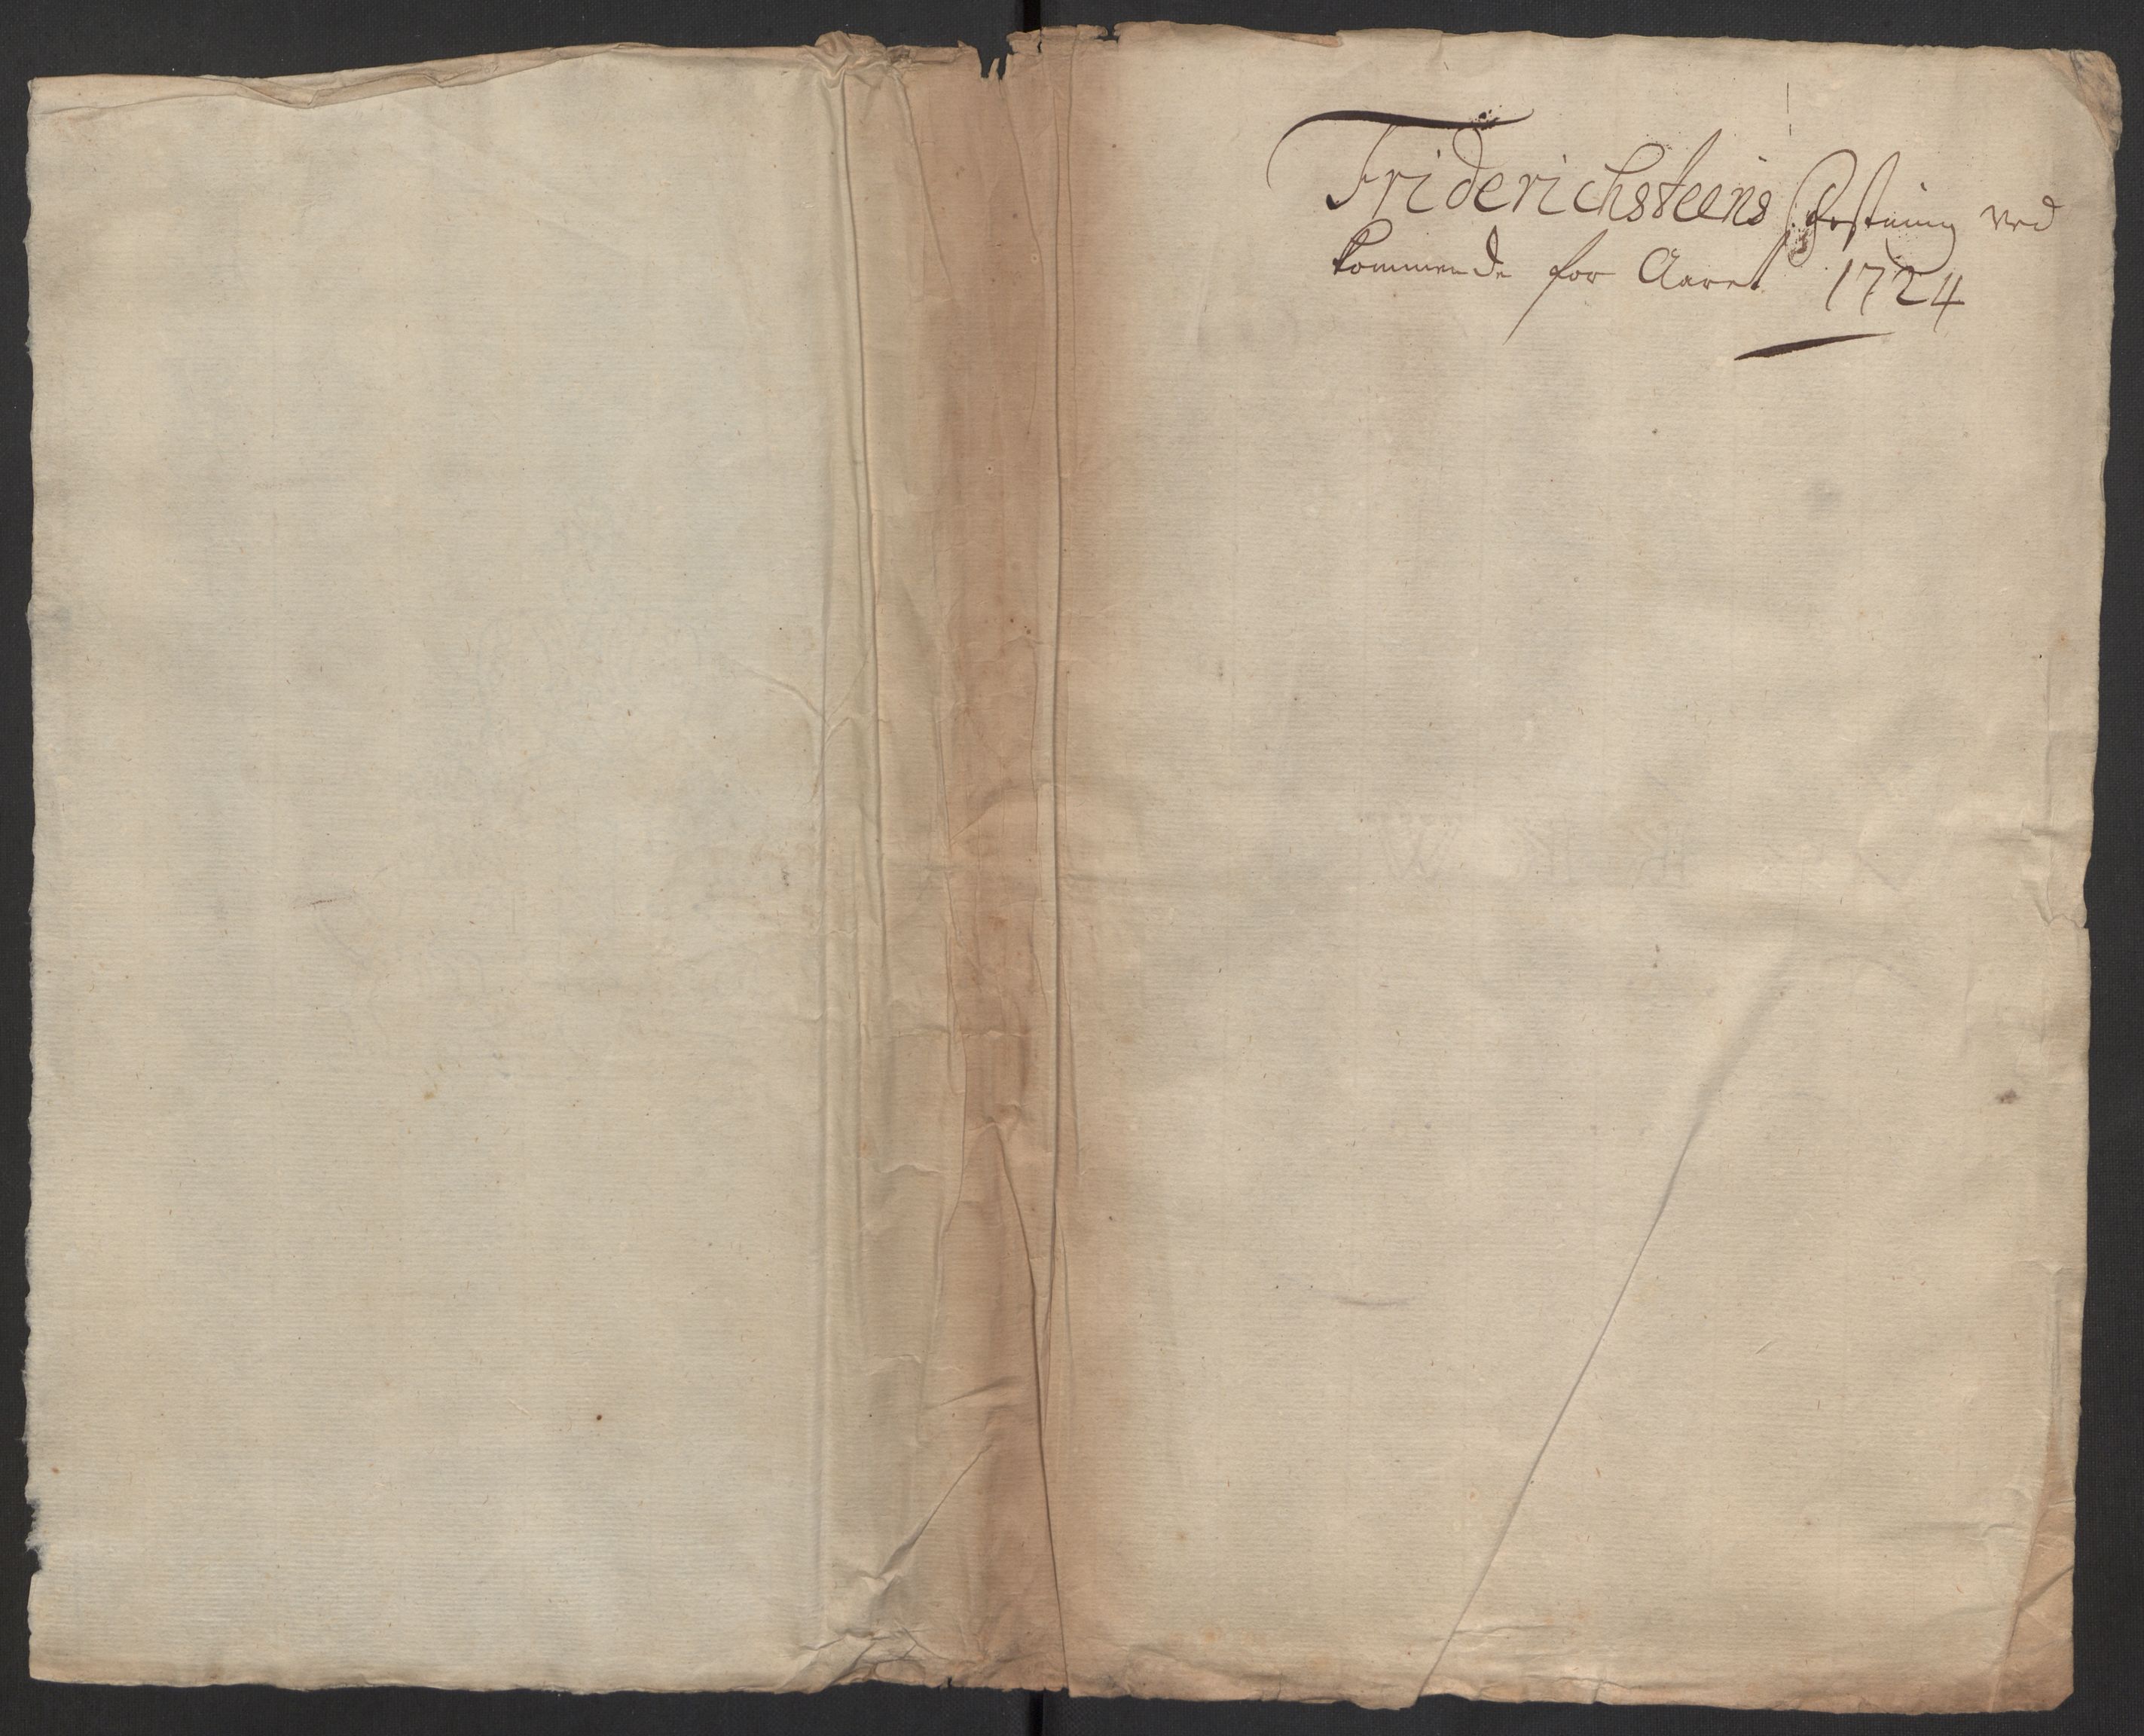 Friderichsteens Fæstning ved
kommende for Aaret 1724